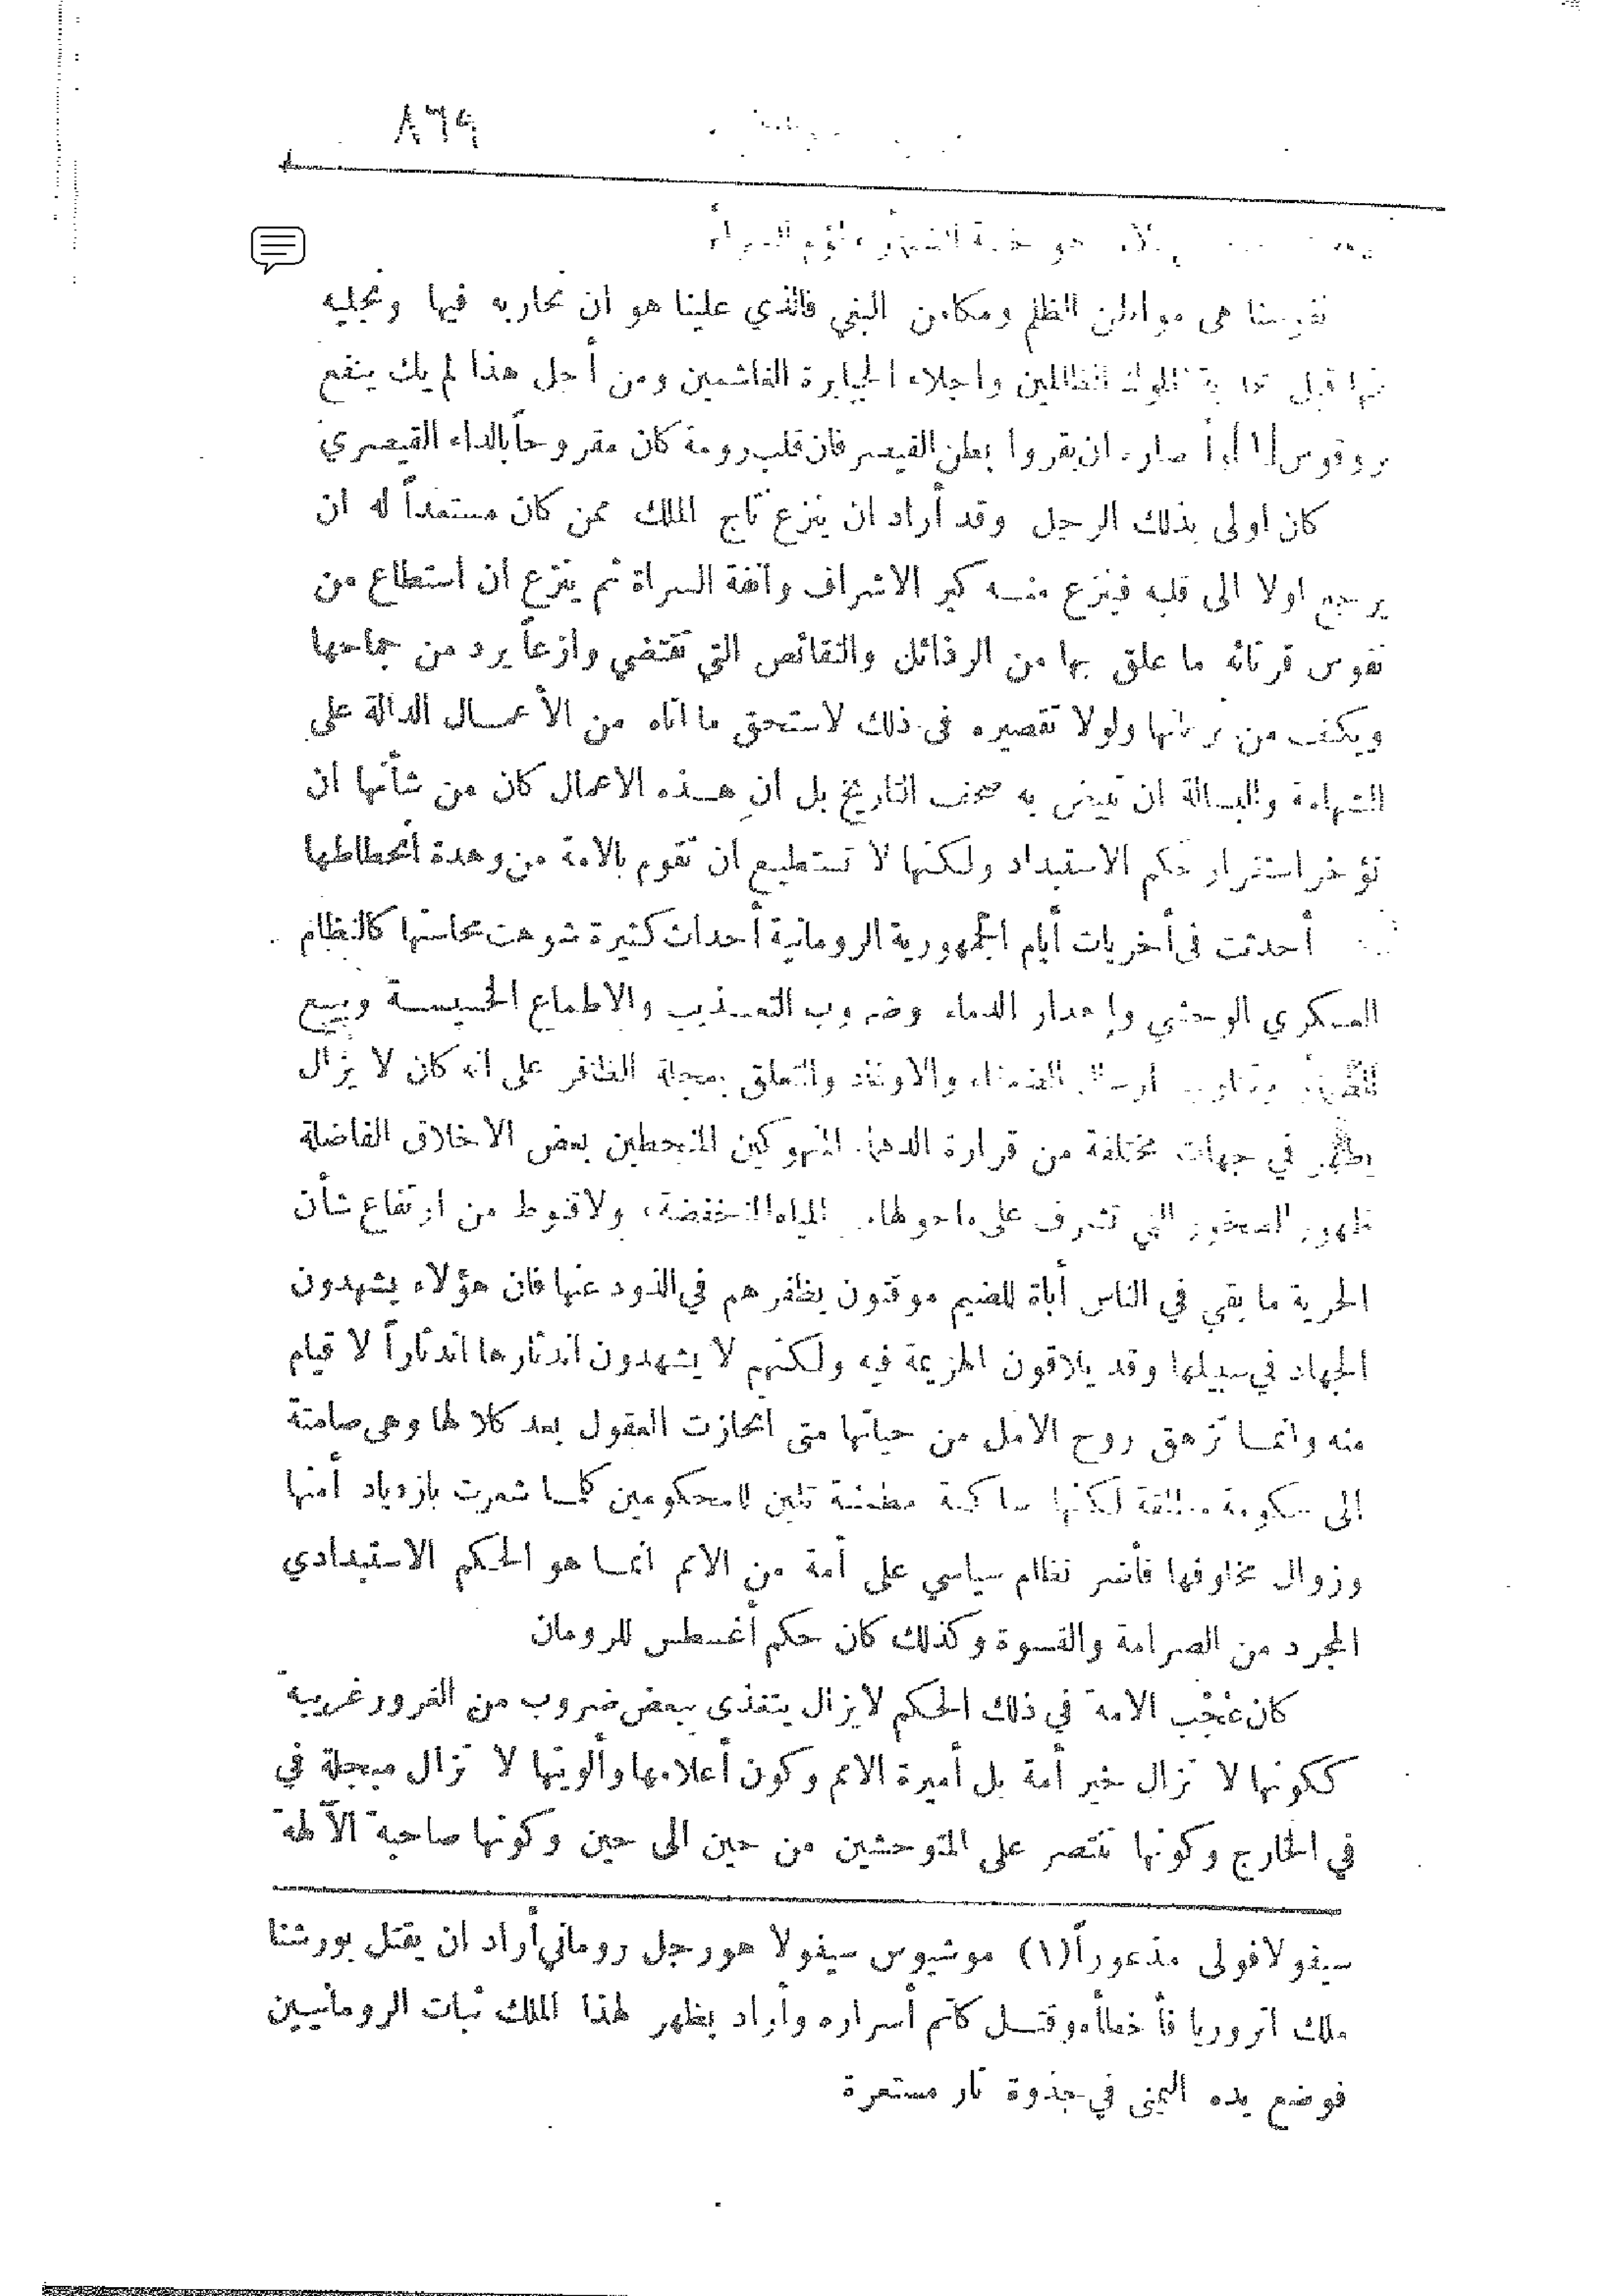 ٨٦٩
هو
نفوسنا هى مواطن الظلم ومكامن البغي فالذي علينا هو ان نحاربه فيها ونجليه
قبل الملوك الظالمين واجلاء الجبابرة الغاشمين ومن أجل هذا لم يك ينفع
ان بقروا بطن القيصر فان قلب رومة كان مقروحاً بالداء القيصري
كان اولى بذلك الرجل وقد أراد ان ينزع تاج الملك ممن كان مستعداً له ان
يرجع اولا الى قلبه فينزع منه كبر الاشراف وانفة السراة ثم ينزع ان استطاع من
نفوس قرنائه ما علق بها من الرذائل والنقائص التي تقتضي وازعاً يرد من جماحها
ويكف من ولولا تقصيره فى ذلك لاستحق ما اتاه من الأعمال الدالة على
الشهامة والبسالة ان تبيض به صحف التاريخ بل ان هذه الاعمال كان من شأنها ان
تؤخر استقرار حكم الاستبداد ولكنها لا تستطيع ان تقوم بالامة من وهدة انحطاطها
أحدثت فى أخريات أيام الجمهورية الرومانية أحداث كثيرة شوهت محاسنها كالنظام
العسكري الوحشي وإهدار الدماء وضروب التعذيب والاطماع الخسيسة وبيع
والتعلق بعجلة الظافر على انه كان لا يزال
يظهر في جهات مختلفة من قرارة الدهماء المنهوكين المنحطين بعض الاخلاق الفاضلة
ظهور الصخور التي تشرف على ماحولها من المياه المنخفضة، ولا قنوط من ارتفاع شأن
الحرية ما بقي في الناس أباة للضيم موقنون بظفرهم في الذود عنها فان هؤلاء يشهدون
الجهاد في سبيلها وقد يلاقون الهزيمة فيه ولكنهم لا يشهدون اندثارها اندثاراً لا قيام
منه وانما تزهق روح الامل من حياتها متى انحازت العقول بعد كلالها وهى صامتة
الى حكومة مطلقة لكنها ساكنة مطمئنة تلين للمحكومين كلما شعرت بازدياد أمنها
وزوال مخاوفها فأضر نظام سياسي على أمة من الامم انما هو الحكم الاستبدادي
المجرد من الصرامة والقسوة وكذلك كان حكم أغسطس للرومان
كان عُجْب الامة في ذلك الحكم لا يزال يتغذى ببعض ضروب من الغرور غريبة
ككونها لا تزال خير أمة بل أميرة الامم وكون أعلامها وألويتها لا تزال مبجلة في
في الخارج وكونها تنتصر على المتوحشين من حين الى حين وكونها صاحبة الآلهة
سيفولا فولى مذعوراً (١) موشيوس سيفولا هو رجل روماني أراد ان يقتل بورشنا
ملك اتروريا فأخطأه وقتل كاتم أسراره وأراد يظهر لهذا الملك ثبات الرومانيين
فوضع يده اليمنى في جذوة نار مستعرة